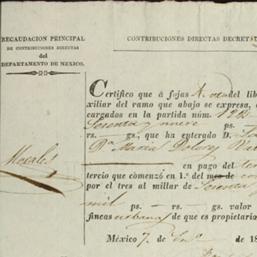 RECAUDACION PRINCIPAL
DE CONTRIBUCIONES DIRECTAS
del
DEPARTAMENTO DE MEXICO.
CONTRIBUCIONES DIRECTAS DECRETAD
Certifico que á fojas vta del lib
xiliar del ramo que abajo se expresa,
cargados en la partida núm.
Sesenta y nueve ps.
rs. gs., que ha enterado D.
Da. Maria Dolores
en pago del ter
tercio que comenzó en 1.º de
por el tres al millar de
mil ps. rs. gs. valor
fincas urbanas que es propietari
México 7 de Eno. de 18
Morales